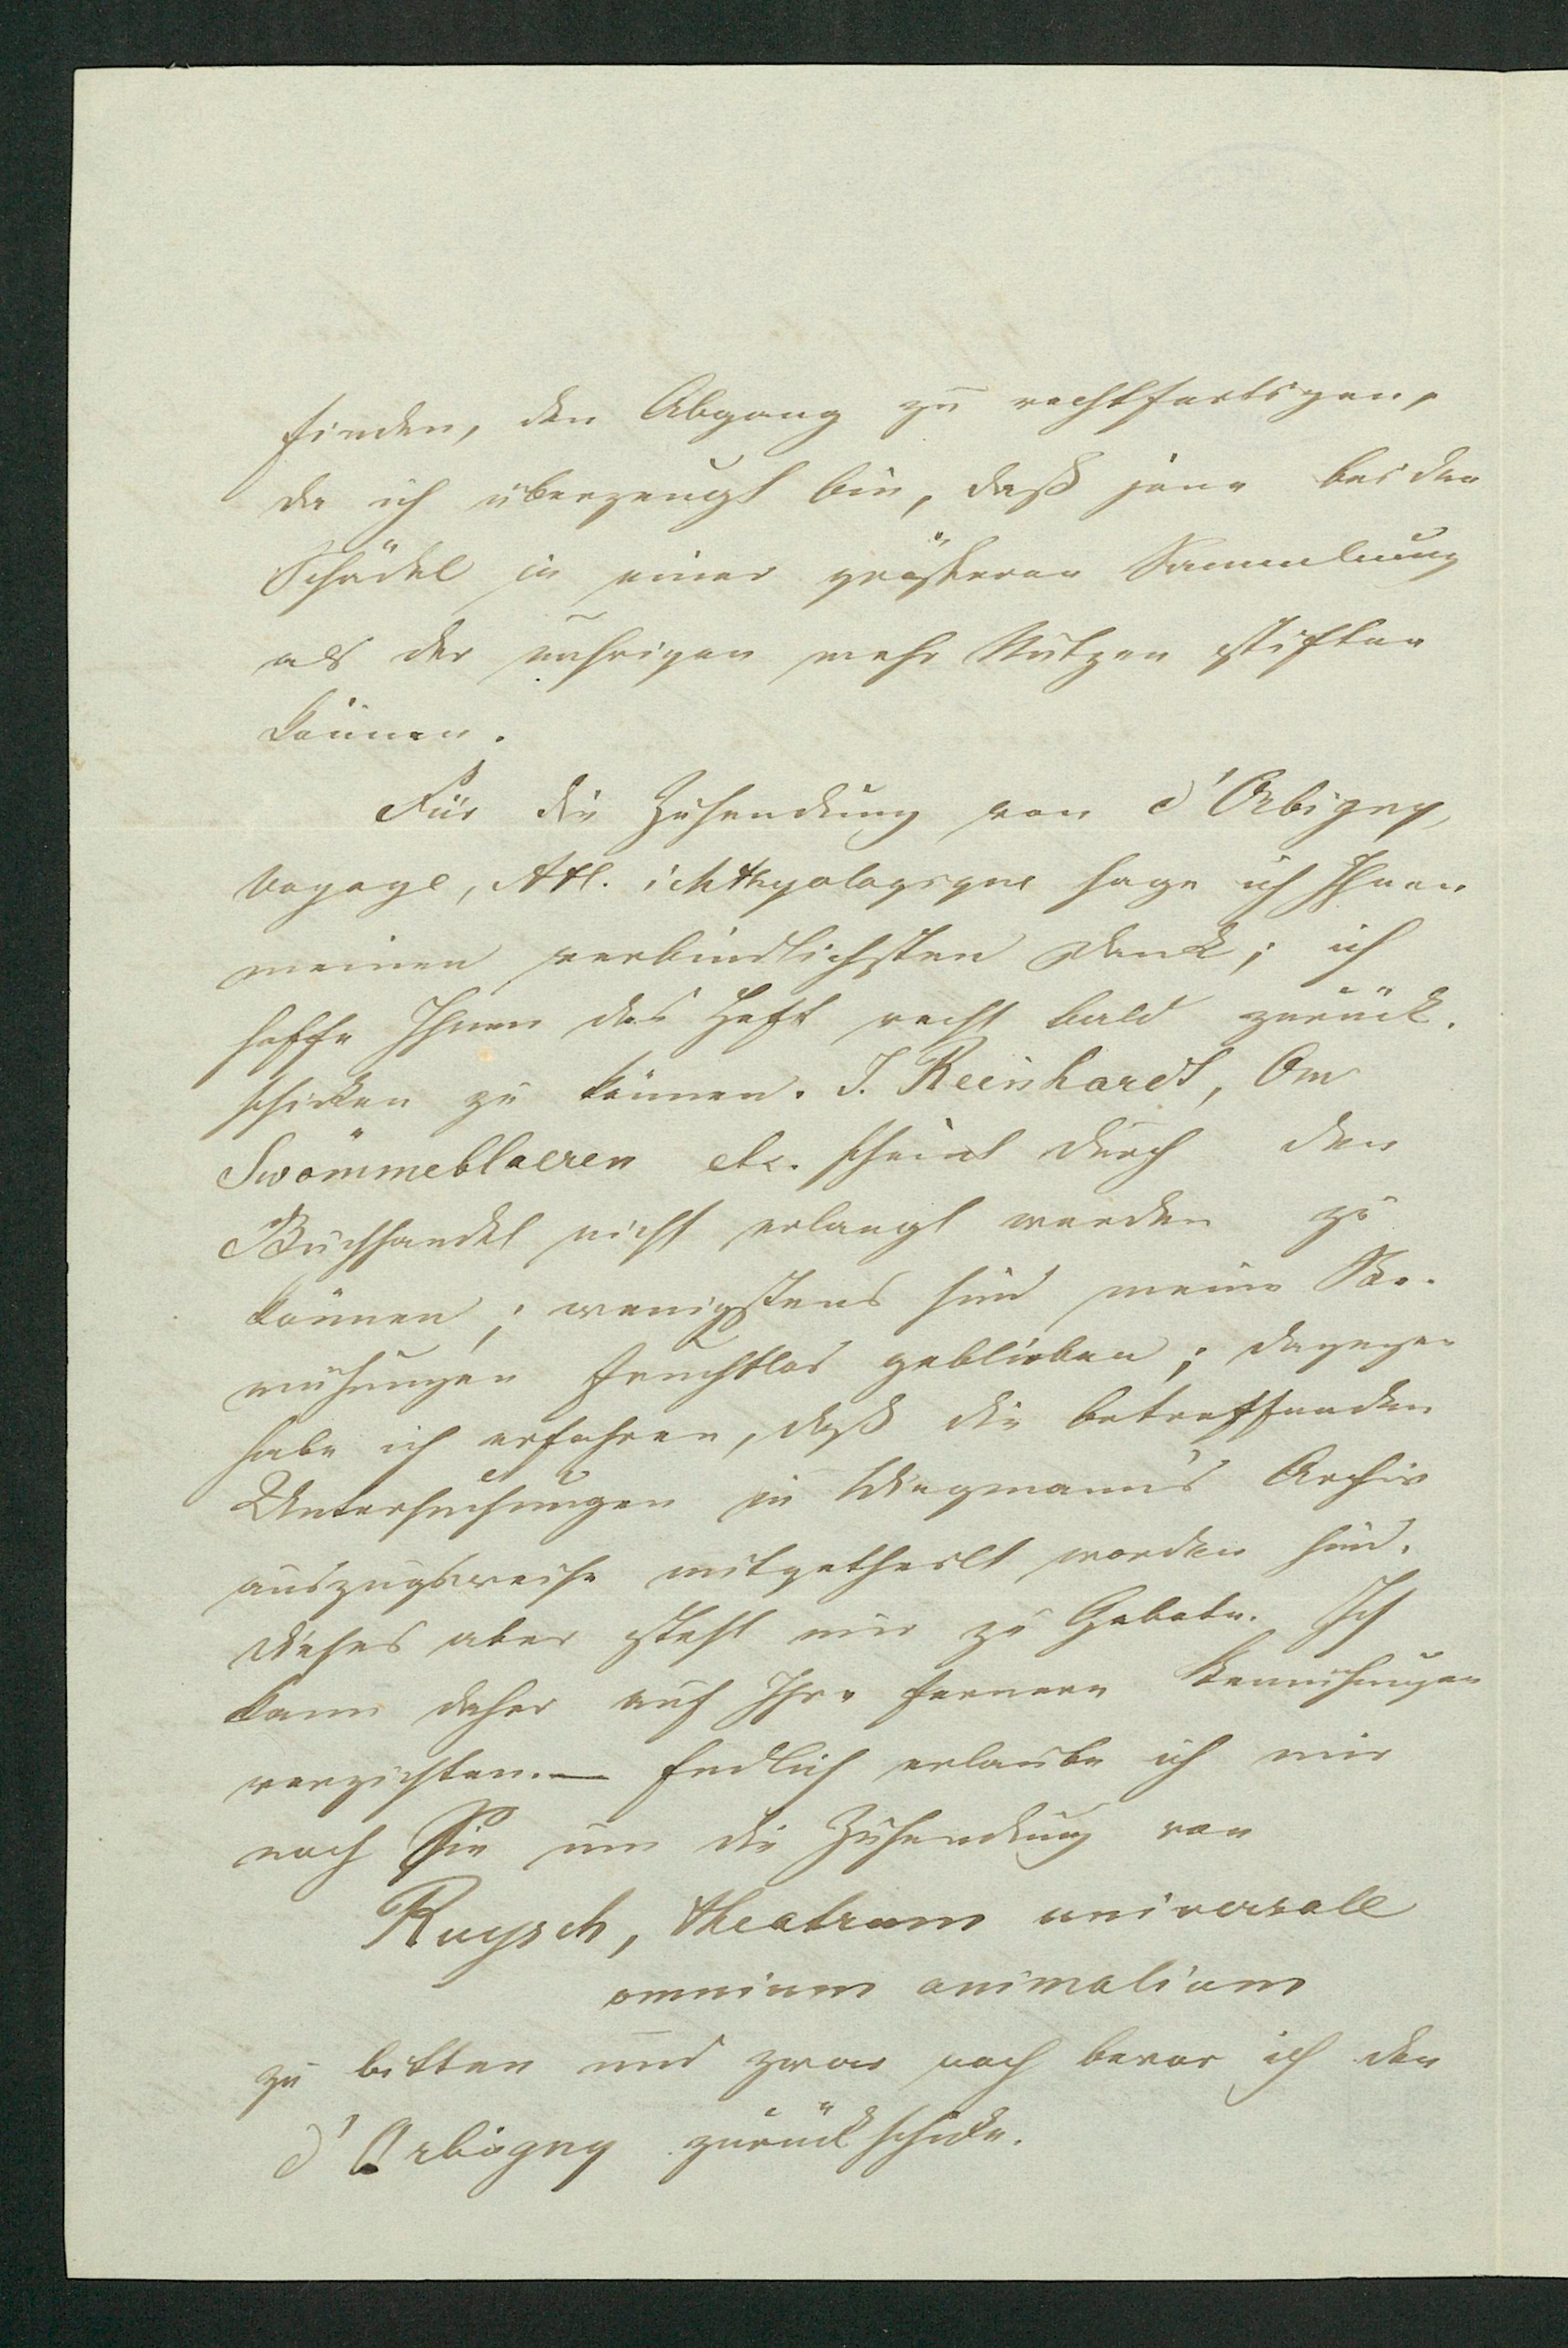 finden, den Abgang zu rechtfertigen,
da ich überzeugt bin, daß jene beiden
Schädel in einer größeren Sammlung
als der unsrigen mehr Nutzen stiften
können.
Für die Zusendung von d'Orbigny,
voyage, Atl. ichthyologique sage ich Ihnen
meinen verbindlichsten Dank; ich
hoffe Ihnen das Heft recht bald zurück-
schicken zu können. J. Reinhardt, Om
Swömmeblaeren etc. scheint durch den
Buchhandel nicht erlangt werden zu
können; wenigstens sind meine Be-
mühungen fruchtlos geblieben; dagegen
habe ich erfahren, daß die betreffenden
Untersuchungen in Wiegmann's Archiv
auszugsweise mitgetheilt worden sind.
dieses aber steht mir zu Gebote. Ich
kann daher auf Ihre ferneren Bemühungen
verzichten. — Endlich erlaube ich mir
noch Sie um die Zusendung von
Ruysch, theatrum universale
omnium animalium
zu bitten und zwar noch bevor ich den
d'Orbigny zurückschicke.